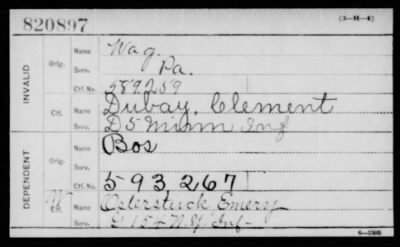 820897
(3-H-4)
INVALID
Orig.
Name Wag.
Serv. Pa.
Ctf. No. 589259
Ctf.
Name Dubay, Clement
Serv. D 5 Minn Inf
DEPENDENT
Orig.
Name Bos
Serv.
Ctf. No. 593,267
Ctf.
Name Osterstuck, Emery
Serv. 154 N.Y. Inf-